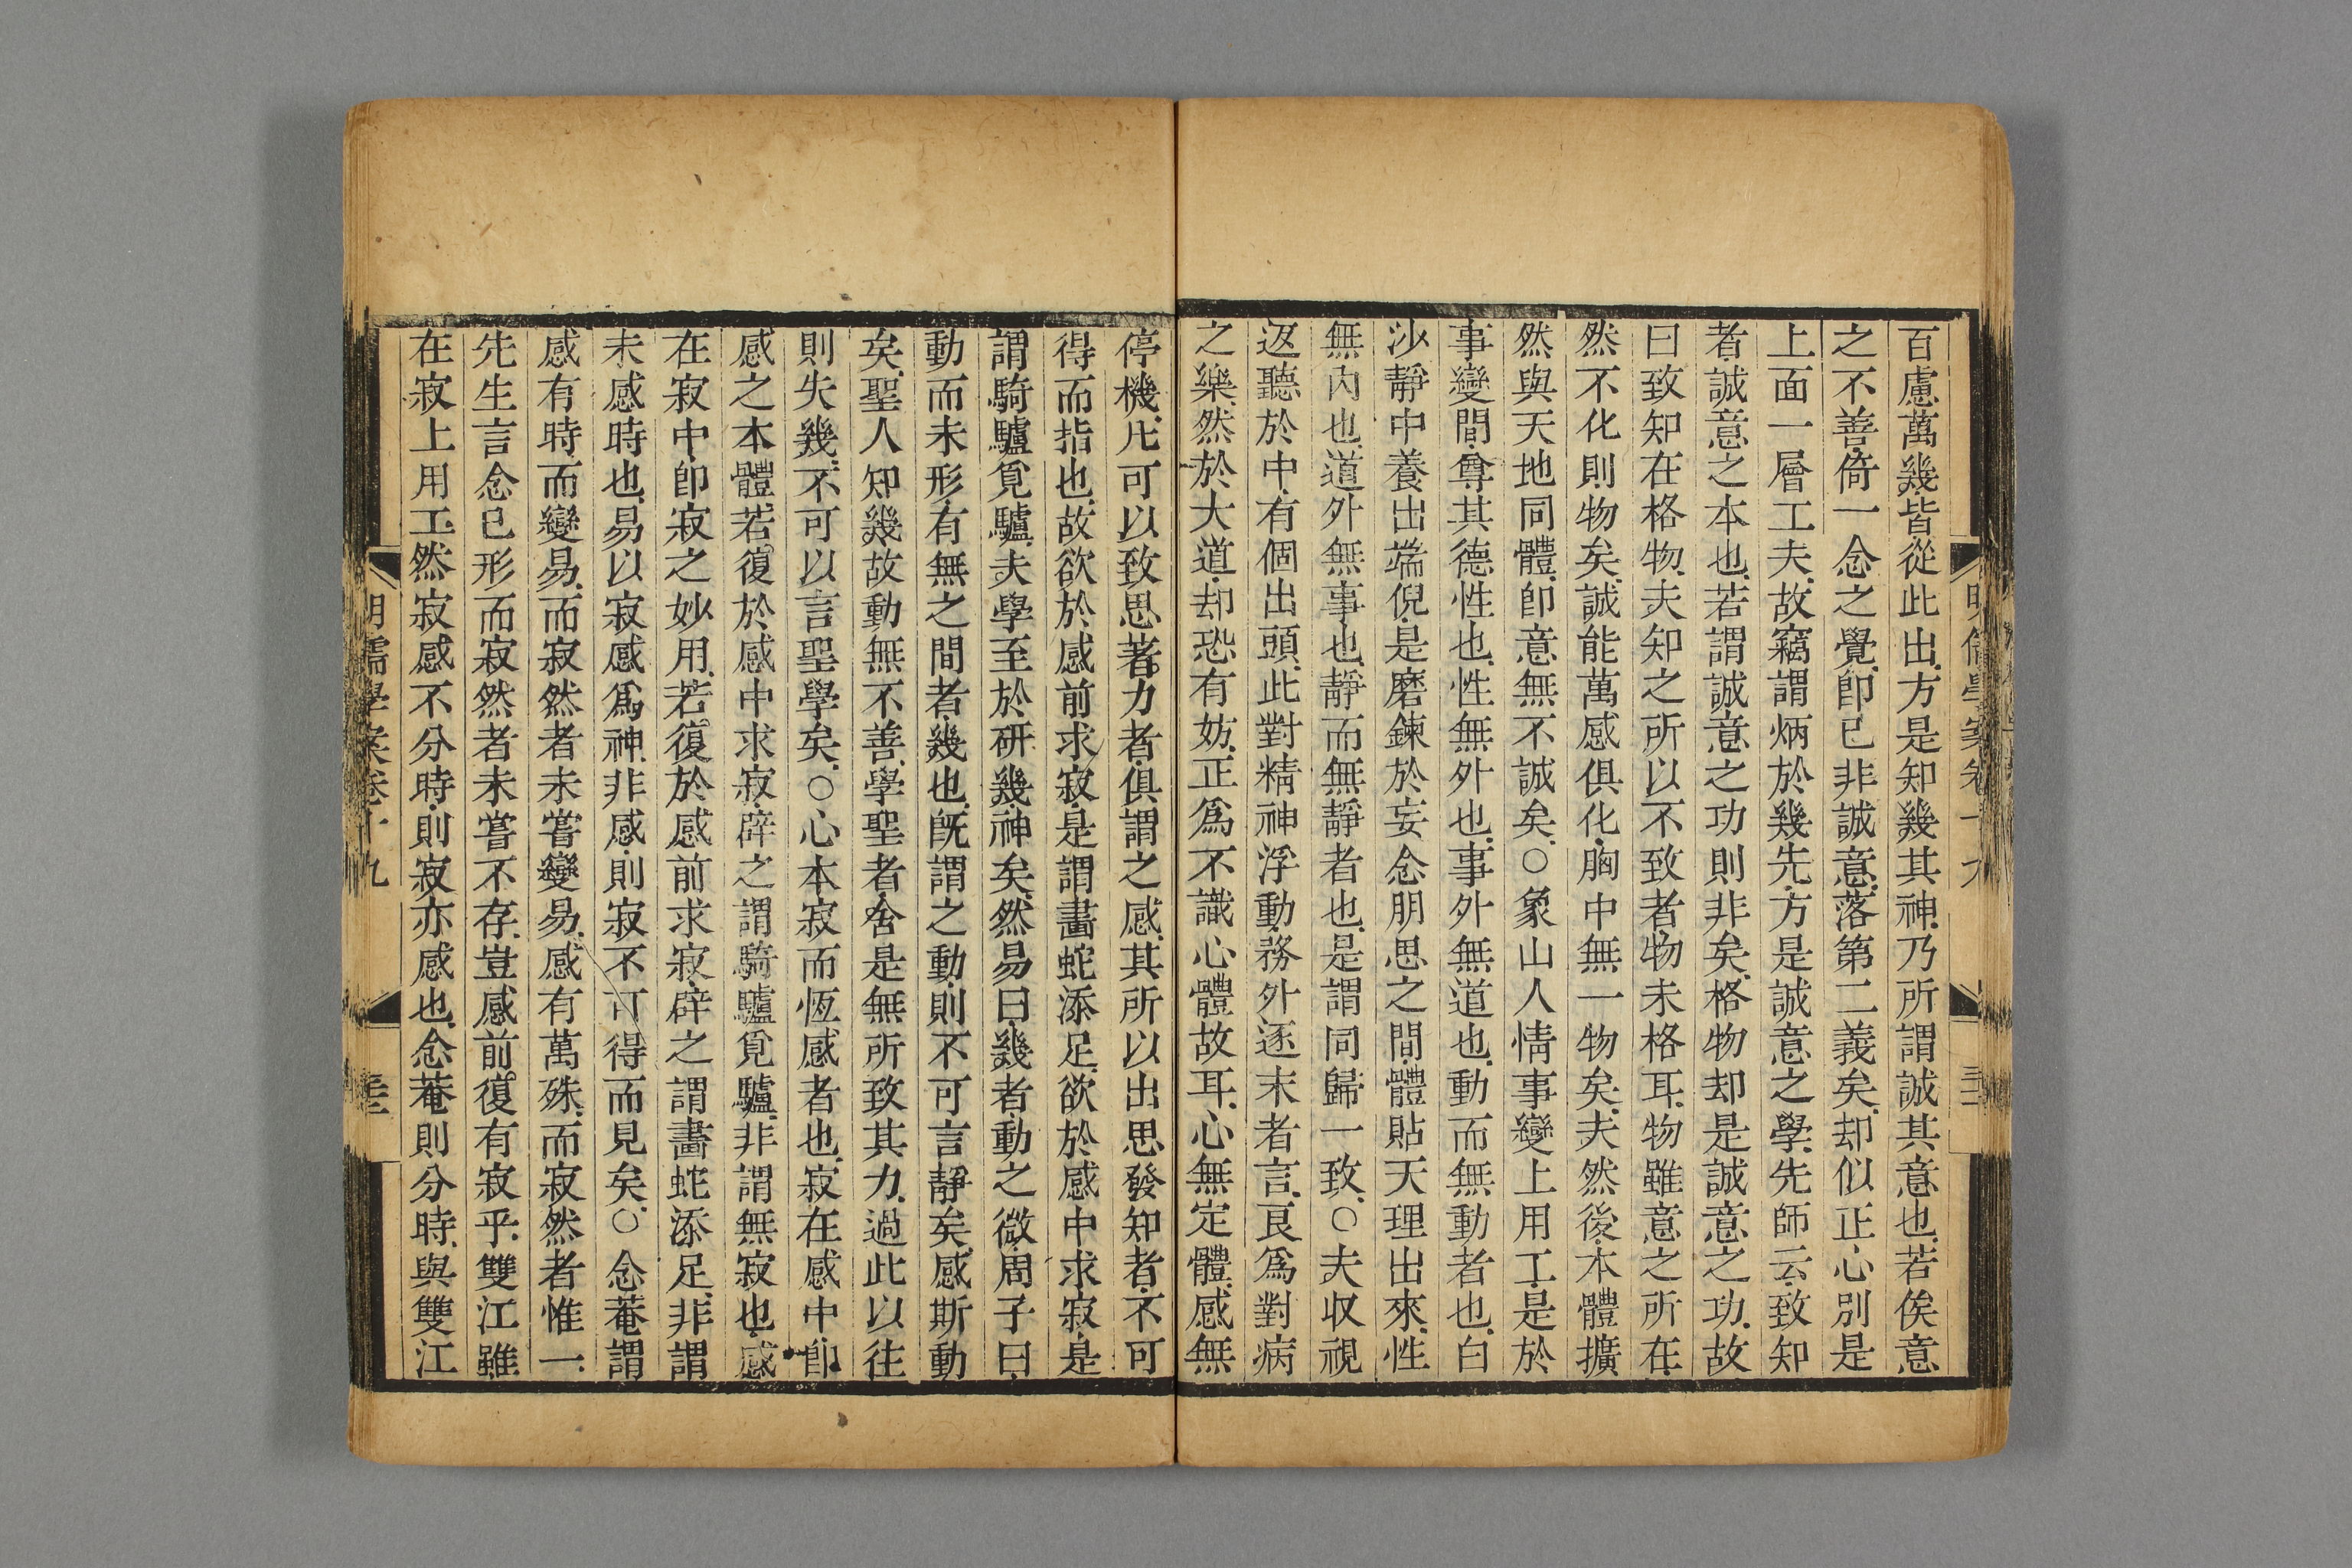 百慮萬幾皆從此出方是知幾其神乃所謂誠其意也若俟意
之不善倚一念之覺卽已非誠意落第二義矣却似正心別是
上面一層工夫故竊謂炳於幾先方是誠意之學先師云致知
者誠意之本也若謂誠意之功則非矣格物却是誠意之功故
曰致知在格物夫知之所以不致者物未格耳物雖意之所在
然不化則物矣誠能萬感俱化胸中無一物矣夫然後本體擴
然與天地同體卽意無不誠矣○象山人情事變上用工是於
事變間尊其德性也性無外也事外無道也動而無動者也白
沙靜中養出端倪是磨鍊於妄念朋思之間體貼天理出來性
無內也道外無事也靜而無靜者也是謂同歸一致○夫収視
返聽於中有個出頭此對精神浮動務外逐末者言良爲對病
之藥然於大道却恐有妨正爲不識心體故耳心無定體感無
停機凡可以致思著力者俱謂之感其所以出思發知者不可
得而指也故欲於感前求寂是謂畫蛇添足欲於感中求寂是
謂騎驢覓驢夫學至於研幾神矣然易曰幾者動之微周子曰
動而未形有無之間者幾也旣謂之動則不可言靜矣感斯動
矣聖人知幾故動無不善學聖者舍是無所致其力過此以往
則失幾不可以言聖學矣○心本寂而恆感者也寂在感中卽
感之本體若復於感中求寂辟之謂騎驢覓驢非謂無寂也感
在寂中卽寂之妙用若復於感前求寂辟之謂畫蛇添足非謂
未感時也易以寂感爲神非感則寂不可得而見矣○念菴謂
感有時而變易而寂然者未嘗變易感有萬殊而寂然者惟一
先生言念已形而寂然者未嘗不存豈感前復有寂乎雙江雖
在寂上用工然寂感不分時則寂亦感也念菴則分時與雙江
明儒學案卷十九